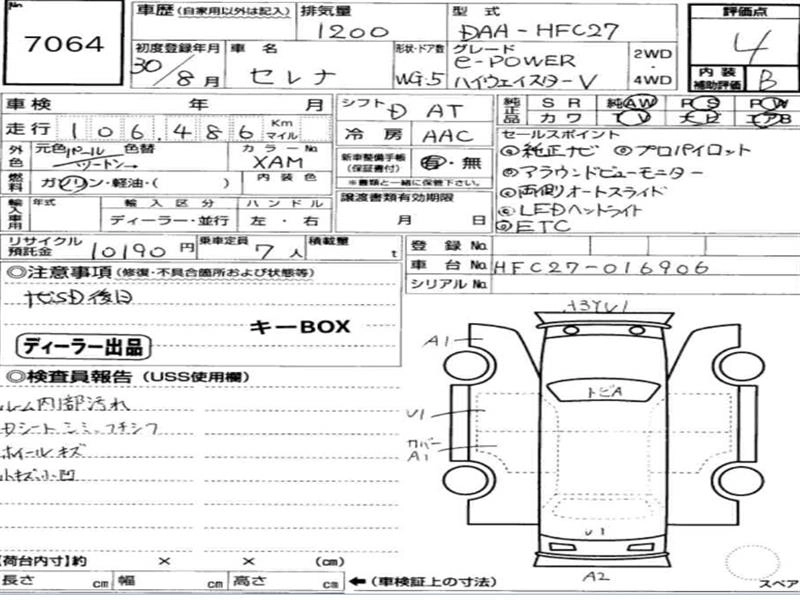 No.
7064
車歴 (自家用以外は記入)
排気量
1200
型式
DAA-HFC27
評価点
4
内装補助評価 B
初度登録年月
30/8月
車名
セレナ
形状・ドア数
WG.5
グレード
e-POWER
ハイウェイスターV
2WD
・
4WD
車検 年 月
走行 106.486 Km マイル
外色 元色 パール 色替
ツートン
カラーNo.
XAM
燃料 ガソリン・軽油・( )
内装色
輸入車用 年式
輸入区分
ディーラー・並行
ハンドル
左・右
シフト D AT
冷房 AAC
新車整備手帳
(保証書付)
有・無
※書類と一緒に保管下さい。
譲渡書類有効期限
月 日
純正品 SR 純AW PS PW
カワ TV ナビ エアB
セールスポイント
①純正ナビ ②プロパイロット
③アラウンドビューモニター
④両側オートスライド
⑤LEDヘッドライト
⑥ETC
リサイクル預託金 10190円
乗車定員 7人
積載量 t
登録No.
車台No. HFC27-016906
シリアルNo.
◎注意事項 (修復・不具合箇所および状態等)
ナビSD後日
キーBOX
ディーラー出品
◎検査員報告 (USS使用欄)
ルーム内部汚れ
Dシートシミ、フチシワ
ホイールキズ
小キズ小凹
A3YU1
A1
トビA
U1
カバー
A1
U1
A2
スペア
【荷台内寸】約 × × (cm)
長さ cm 幅 cm 高さ cm ←(車検証上の寸法)